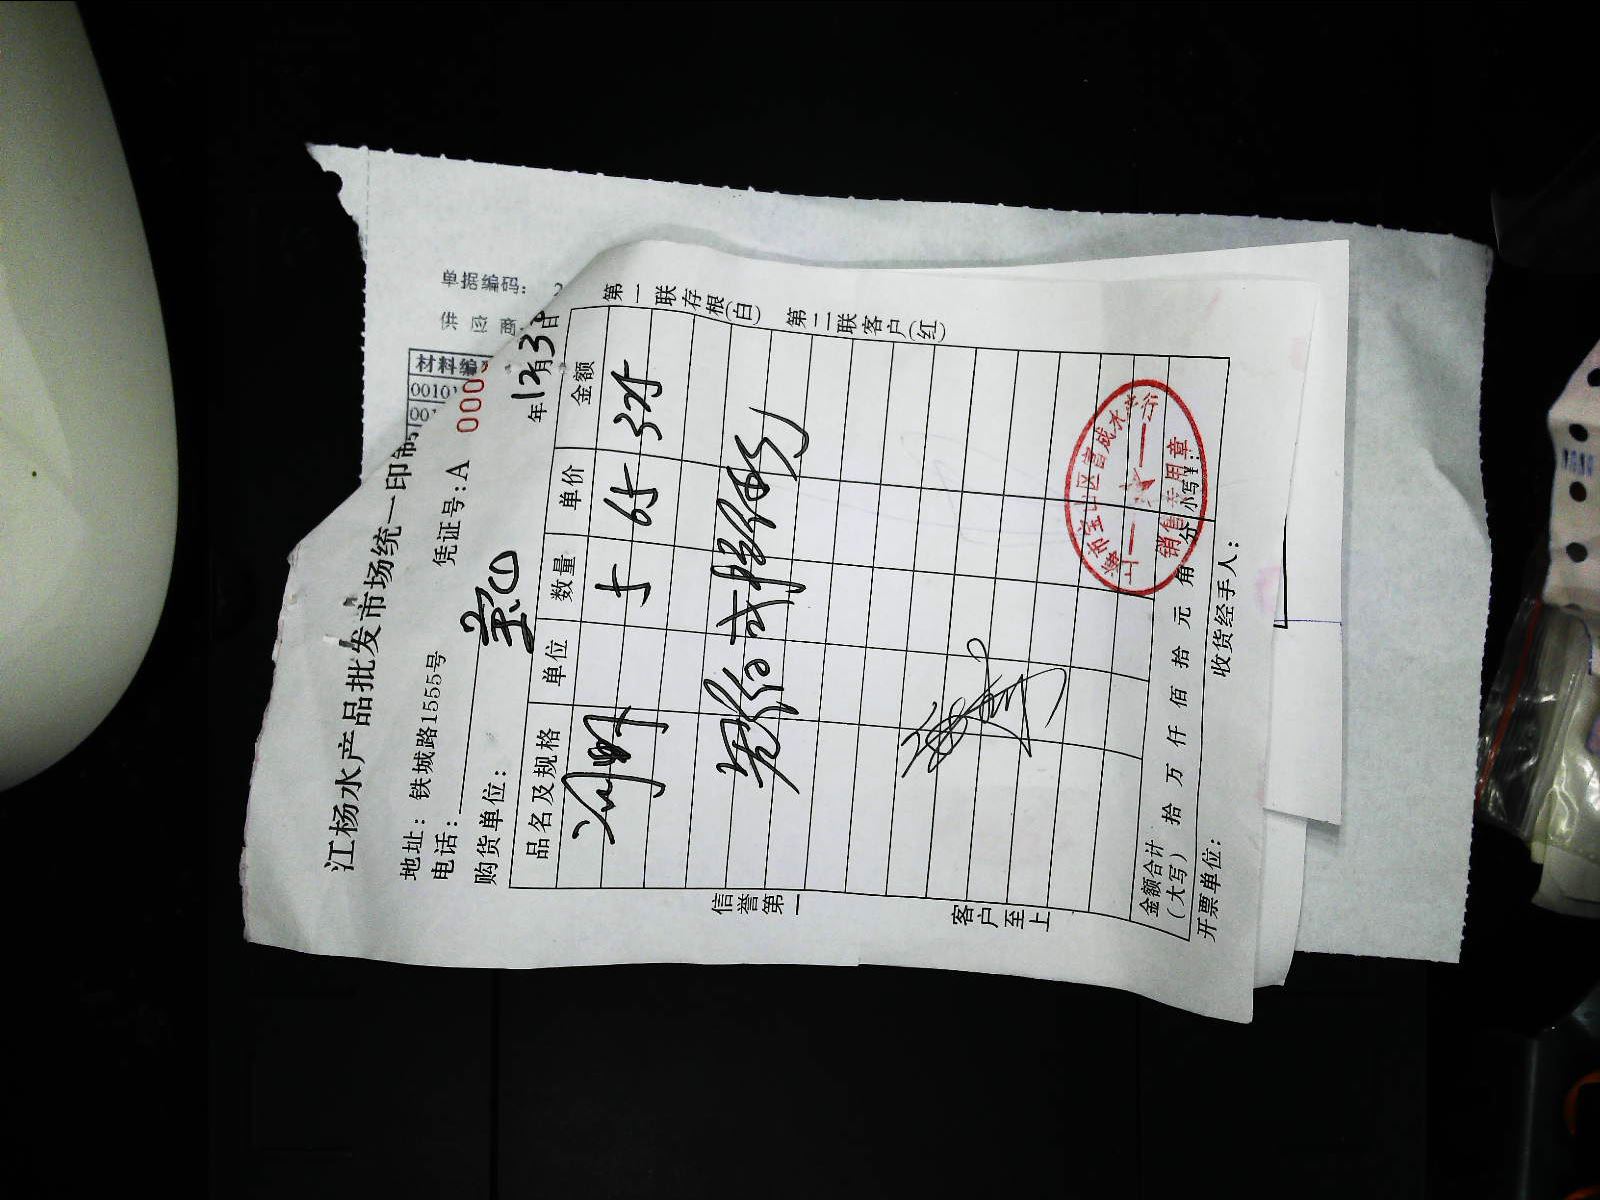 单据编码：
供应商
材料编
0010
江杨水产品批发市场统一印制
地址：铁城路1555号
凭证号：A 000
电话：
购货单位：
年12月3日
品名及规格 单位 数量 单价 金额
5 65 325
叁佰贰拾伍
第一联存根(白)
第二联客户(红)
信誉第一
客户至上
上海市宝山区
销售专用章
金额合计(大写) 拾 万 仟 佰 拾 元 角 分 小写¥：
开票单位：
收货经手人：